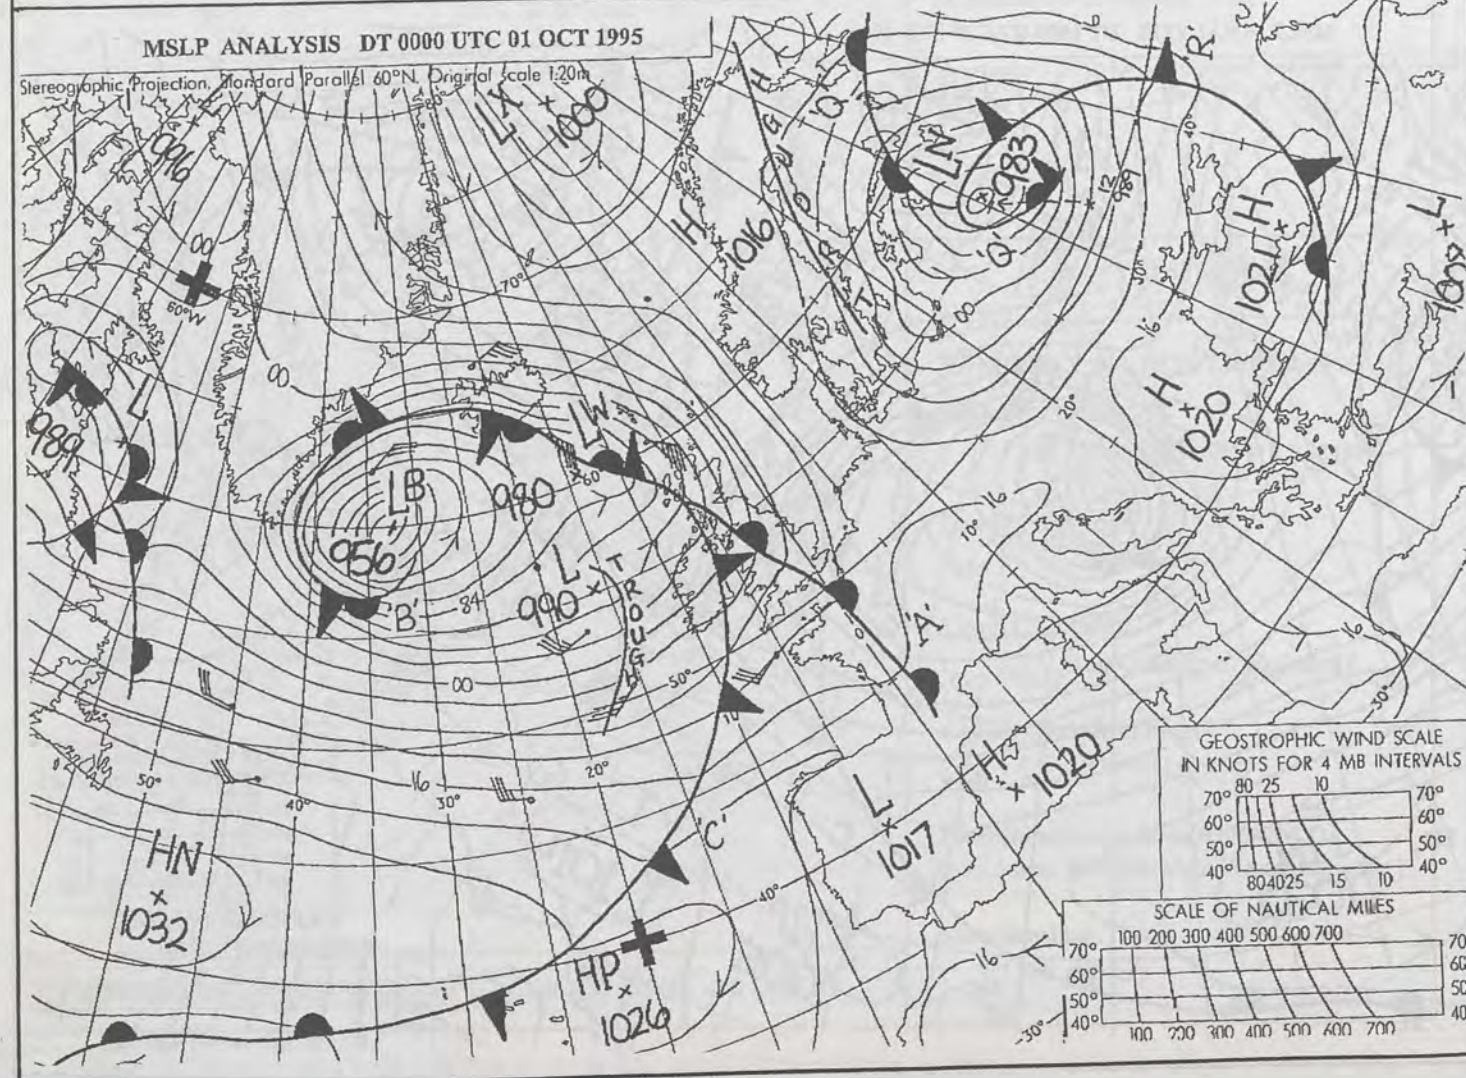 MSLP ANALYSIS DT 0000 UTC 01 OCT 1995
Stereographic Projection, Standard Parallel 60°N. Original Scale 1:20m
80°
LX
1000
996
00
60°W
70°
H
1016
TROUGH
'Q'
LN
983
12
989
'Q'
00
16
'R'
40°
30°
H
1021
L
1008
16
H
1020
20°
10°
L
989
00
LB
956
'B'
84
LW
980
60°
L
990
TROUGH
00
50°
10°
0°
'A'
16
16
30°
50°
40°
30°
20°
16
'C'
L
1017
H
1020
HN
1032
HP
1026
40°
16
30°
GEOSTROPHIC WIND SCALE
IN KNOTS FOR 4 MB INTERVALS
80 25 10
70° 70°
60° 60°
50° 50°
40° 40°
80 40 25 15 10
SCALE OF NAUTICAL MILES
100 200 300 400 500 600 700
70° 70
60° 60
50° 50
40° 40
100 200 300 400 500 600 700